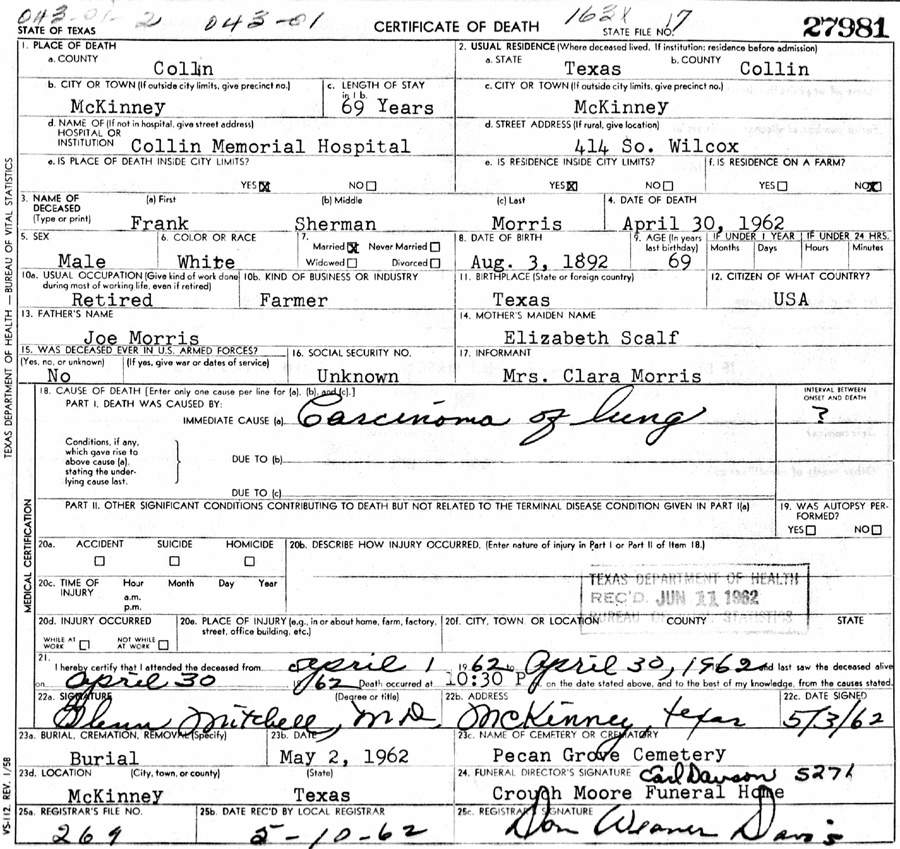 043-01-2 043-01 CERTIFICATE OF DEATH 163X 17 27981
STATE OF TEXAS STATE FILE NO.
1. PLACE OF DEATH
a. COUNTY
Collin
2. USUAL RESIDENCE (Where deceased lived. If institution: residence before admission)
a. STATE b. COUNTY
Texas Collin
b. CITY OR TOWN (If outside city limits, give precinct no.)
McKinney
c. LENGTH OF STAY
in 1 b.
69 Years
c. CITY OR TOWN (If outside city limits, give precinct no.)
McKinney
d. NAME OF (If not in hospital, give street address)
HOSPITAL OR
INSTITUTION Collin Memorial Hospital
d. STREET ADDRESS (If rural, give location)
414 So. Wilcox
e. IS PLACE OF DEATH INSIDE CITY LIMITS?
YES NO
e. IS RESIDENCE INSIDE CITY LIMITS?
YES NO
f. IS RESIDENCE ON A FARM?
YES NO
3. NAME OF
DECEASED
(Type or print)
(a) First (b) Middle (c) Last
Frank Sherman Morris
4. DATE OF DEATH
April 30, 1962
5. SEX
Male
6. COLOR OR RACE
White
7.
Married Never Married
Widowed Divorced
8. DATE OF BIRTH
Aug. 3, 1892
9. AGE (In years
last birthday)
69
IF UNDER 1 YEAR
Months Days
IF UNDER 24 HRS.
Hours Minutes
10a. USUAL OCCUPATION (Give kind of work done
during most of working life, even if retired)
Retired
10b. KIND OF BUSINESS OR INDUSTRY
Farmer
11. BIRTHPLACE (State or foreign country)
Texas
12. CITIZEN OF WHAT COUNTRY?
USA
13. FATHER'S NAME
Joe Morris
14. MOTHER'S MAIDEN NAME
Elizabeth Scalf
15. WAS DECEASED EVER IN U.S. ARMED FORCES?
(Yes, no, or unknown) (If yes, give war or dates of service)
No
16. SOCIAL SECURITY NO.
Unknown
17. INFORMANT
Mrs. Clara Morris
18. CAUSE OF DEATH [Enter only one cause per line for (a), (b), and (c).]
PART I. DEATH WAS CAUSED BY:
IMMEDIATE CAUSE (a) Carcinoma of lung
INTERVAL BETWEEN
ONSET AND DEATH
?
Conditions, if any,
which gave rise to
above cause (a),
stating the under-
lying cause last.
DUE TO (b)
DUE TO (c)
PART II. OTHER SIGNIFICANT CONDITIONS CONTRIBUTING TO DEATH BUT NOT RELATED TO THE TERMINAL DISEASE CONDITION GIVEN IN PART I(a)
19. WAS AUTOPSY PER-
FORMED?
YES NO
20a. ACCIDENT SUICIDE HOMICIDE
20b. DESCRIBE HOW INJURY OCCURRED. (Enter nature of injury in Part I or Part II of Item 18.)
20c. TIME OF
INJURY
Hour Month Day Year
a.m.
p.m.
TEXAS DEPARTMENT OF HEALTH
REC'D. JUN 11 1962
BUREAU OF STATISTICS
20d. INJURY OCCURRED
WHILE AT
WORK
NOT WHILE
AT WORK
20e. PLACE OF INJURY (e.g., in or about home, farm, factory,
street, office building, etc.)
20f. CITY, TOWN, OR LOCATION COUNTY STATE
21.
I hereby certify that I attended the deceased from April 1 1962 to April 30, 1962 and last saw the deceased alive
on April 30 1962 Death occurred at 10:30 P. on the date stated above, and to the best of my knowledge, from the causes stated.
22a. SIGNATURE (Degree or title)
Glenn Mitchell, M.D.
22b. ADDRESS
McKinney, Texas
22c. DATE SIGNED
5/3/62
23a. BURIAL, CREMATION, REMOVAL (Specify)
Burial
23b. DATE
May 2, 1962
23c. NAME OF CEMETERY OR CREMATORY
Pecan Grove Cemetery
23d. LOCATION (City, town, or county) (State)
McKinney Texas
24. FUNERAL DIRECTOR'S SIGNATURE Earl Dawson 5271
Crouch Moore Funeral Home
25a. REGISTRAR'S FILE NO.
269
25b. DATE REC'D BY LOCAL REGISTRAR
5-10-62
25c. REGISTRAR'S SIGNATURE
Don Weaver Davis
TEXAS DEPARTMENT OF HEALTH — BUREAU OF VITAL STATISTICS
MEDICAL CERTIFICATION
VS-112 REV. 1/58